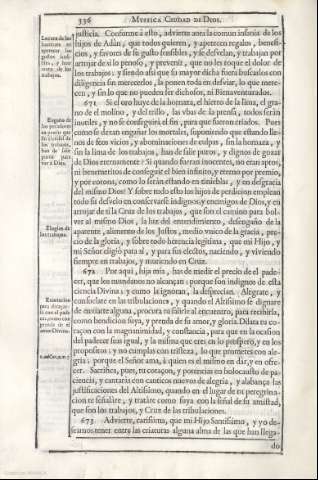 336 MYSTICA CIUDAD DE DIOS.
justicia. Conforme à esto, advierte aora la comun insania de los
hijos de Adàn, que todos quieren, y apetecen regalos, benefi-
cios, y favores de su gusto sensibles, y se desvelan, y trabajan por
arrojar de sì lo penoso, y prevenir, que no les toque el dolor de
los trabajos; y siendo assi que su mayor dicha fuera buscarlos con
diligencia sin merecerlos, la ponen toda en desviar, lo que mere-
cen, y sin lo que no pueden ser dichosos, ni Bienaventurados.
671 Si el oro huye de la hornaza, el hierro de la lima, el gra-
no de el molino, y del trillo, las ubas de la prensa, todos seràn
inutiles, y no se conseguirà el fin, para que fueron criados. Pues
como se dexan engañar los mortales, suponiendo que estando lle-
nos de feos vicios, y abominaciones de culpas, sin la hornaza, y
sin la lima de los trabajos, han de salir puros, y dignos de gozar
de Dios eternamente? Si quando fueran inocentes, no eran aptos,
ni benemeritos de conseguir el bien infinito, y eterno por premio,
y por corona, como lo seràn estando en tinieblas, y en desgracia
del mismo Dios? Y sobre todo esto los hijos de perdicion emplean
todo su desvelo en conservarse indignos, y enemigos de Dios, y en
arrojar de sì la Cruz de los trabajos, que son el camino para bol-
ver al mismo Dios, la luz del entendimiento, desengaño de lo
aparente, alimento de los Justos, medio unico de la gracia, pre-
cio de la gloria, y sobre todo herencia legitima, que mi Hijo, y
mi Señor eligiò para sì, y para sus electos, naciendo, y viviendo
siempre en trabajos, y muriendo en Cruz.
672 Por aqui, hija mia, has de medir el precio de el pade-
cer, que los mundanos no alcançan; porque son indignos de esta
ciencia Divina; y como la ignoran, la desprecian. Alegrate, y
consuelate en las tribulaciones, y quando el Altissimo se dignare
de embiarte alguna, procura tu salirle al encuentro, para recibirla,
como bendicion suya, y prenda de su amor, y gloria. Dilata tu co-
raçon con la magnanimidad, y constancia, para que en la ocasion
del padecer seas igual, y la misma que eres en lo prospero, y en los
propositos; y no cumplas con tristeza, lo que prometes con ale-
gria: porque el Señor ama, à quien es el mismo en dar, y en ofre-
cer. Sacrifica, pues, tu coraçon, y potencias en holocausto de pa-
ciencia, y cantaràs con canticos nuevos de alegria, y alabança las
justificaciones del Altissimo, quando en el lugar de tu peregrina-
cion te señalare, y tratàre como suya con la señal de su amistad,
que son los trabajos, y Cruz de las tribulaciones.
673 Advierte, carissima, que mi Hijo Santissimo, y yo de-
seamos tener entre las criaturas alguna alma de las que han llega-
do